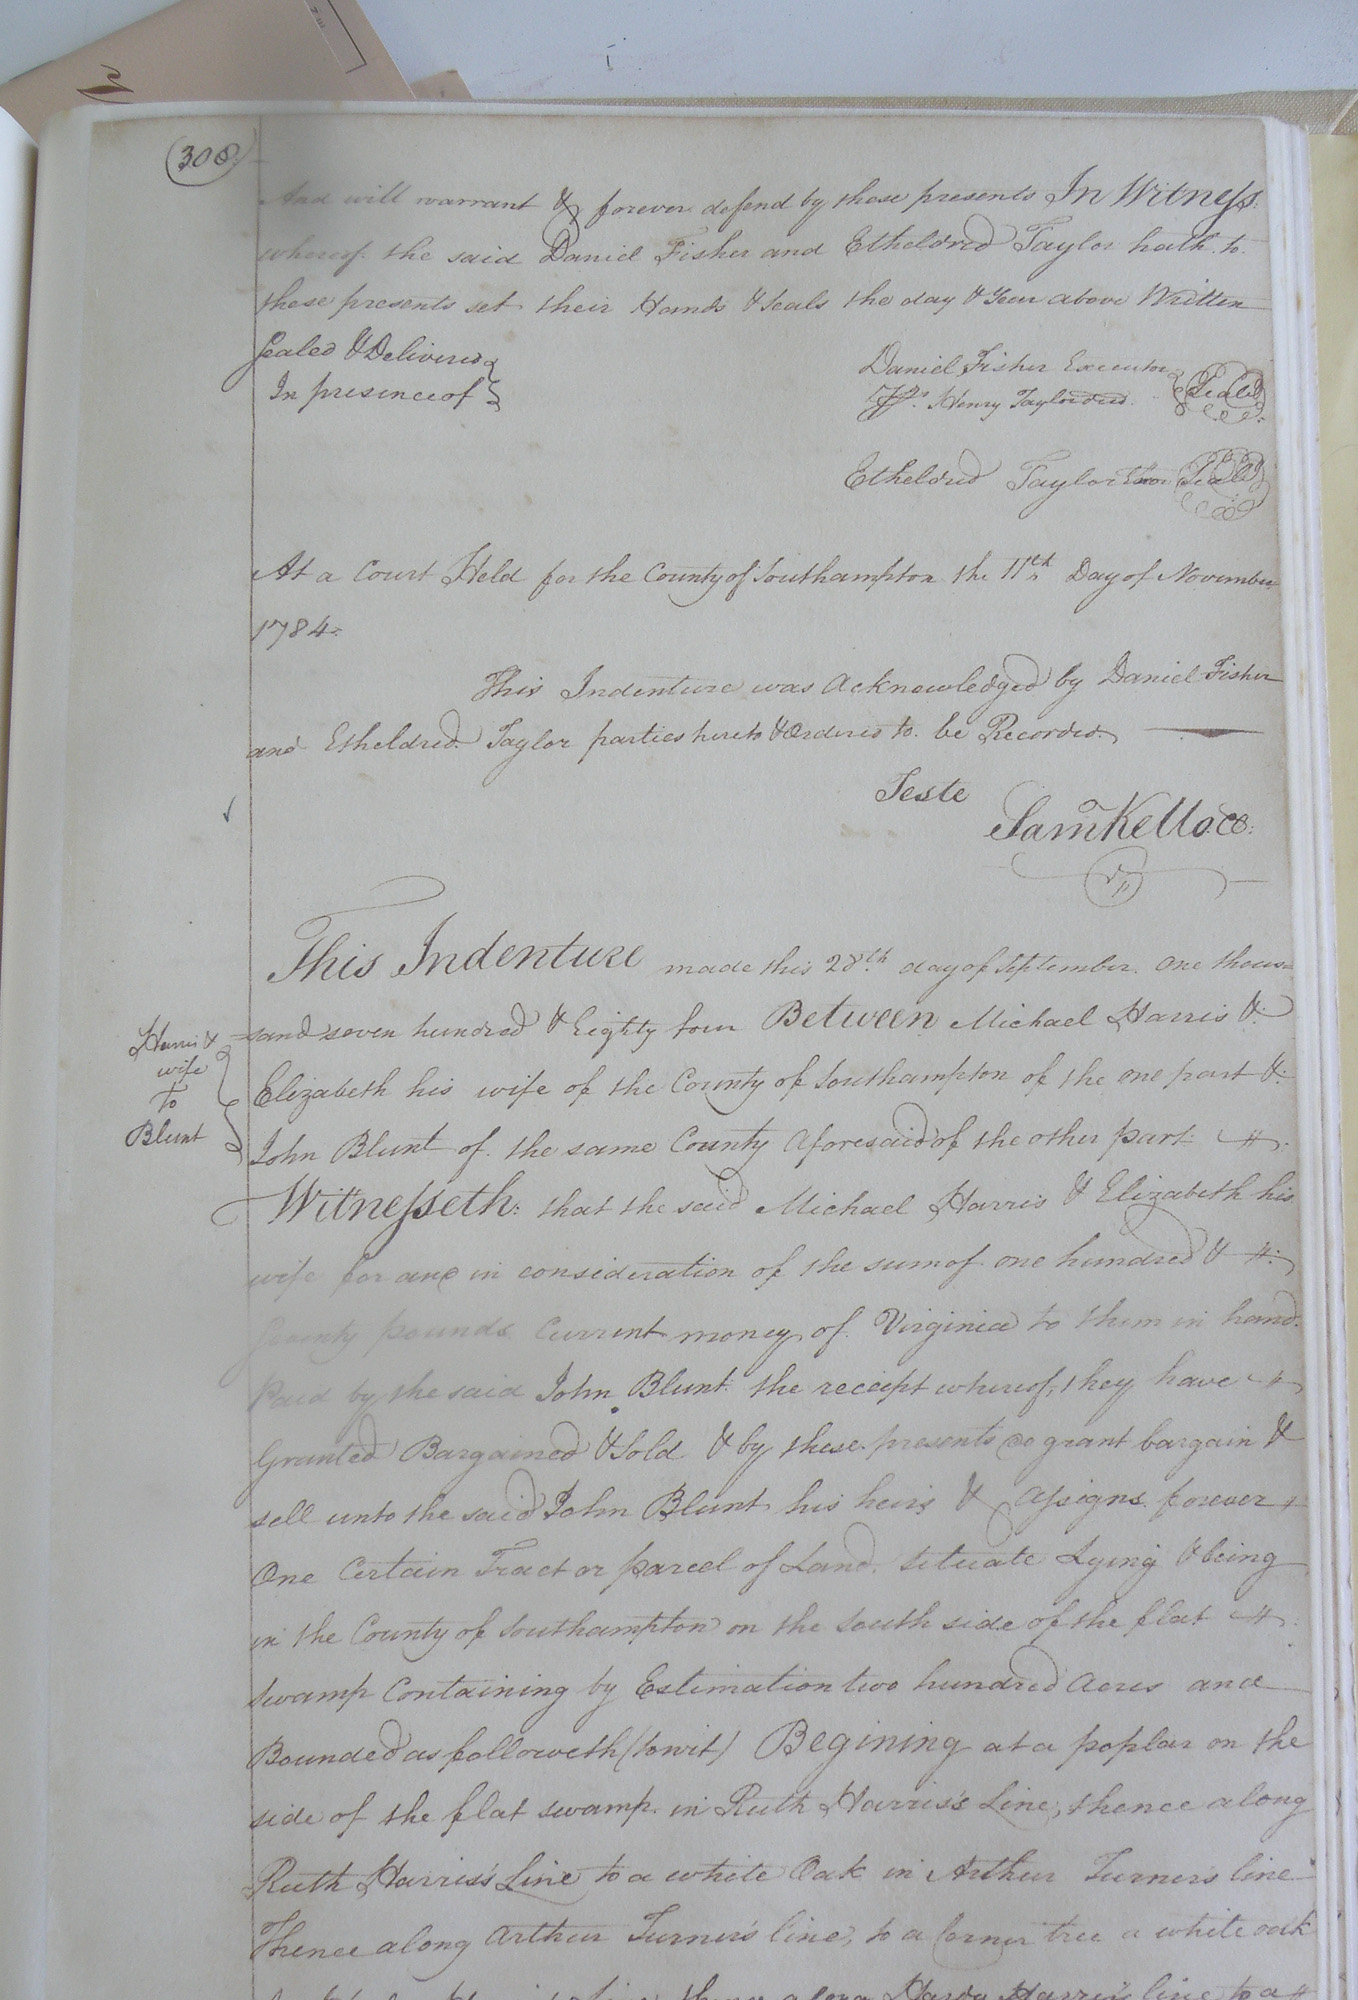 (308)
And will warrant & forever defend by these presents In Witness
whereof the said Daniel Fisher and Etheldred Taylor hath to
these presents set their Hands & Seals the day & Year above Written
Sealed & Delivered
In presence of
Daniel Fisher Executor
Henry Taylor decd. (Seal)
Etheldred Taylor (Seal)
At a Court Held for the County of Southampton the 11th Day of November
1784.
This Indenture was Acknowledged by Daniel Fisher
and Etheldred Taylor parties hereto & Ordered to be Recorded.
Teste
Saml Kello CC:
This Indenture made this 28th. day of September One thou=
=sand seven hundred & Eighty four Between Michael Harris &
Harris &
wife
to
Blunt
Elizabeth his wife of the County of Southampton of the one part &
John Blunt of the same County Aforesaid of the other part
Witnesseth: that the said Michael Harris & Elizabeth his
wife for and in consideration of the sum of one hundred &
pounds Current money of Virginia to them in hand
Paid by the said John Blunt the receipt whereof, they have
Granted Bargained & Sold & by these presents do grant bargain &
sell unto the said John Blunt his heirs & Assigns forever
One Certain Tract or parcel of Land, Situate Lying & being
in the County of Southampton on the South side of the flat
Swamp Containing by Estimation two hundred Acres and
Bounded as followeth (towit) Begining at a poplar on the
side of the flat swamp in Ruth Harris's Line, thence along
Ruth Harris's Line to a white Oak in Arthur Turner's line
Thence along Arthur Turner's line, to a Corner tree a white oak
thence along Hardy Harris's line to a